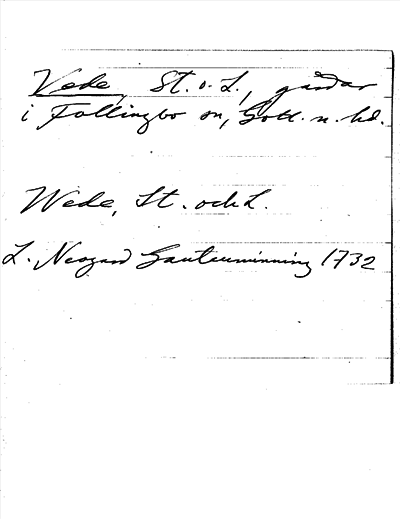 Vede, St. o. L., gårdar
i Follingbo sn, Gotl. n. hd.
Wede, St. och L.
L. Neogard Gautauminning 1732